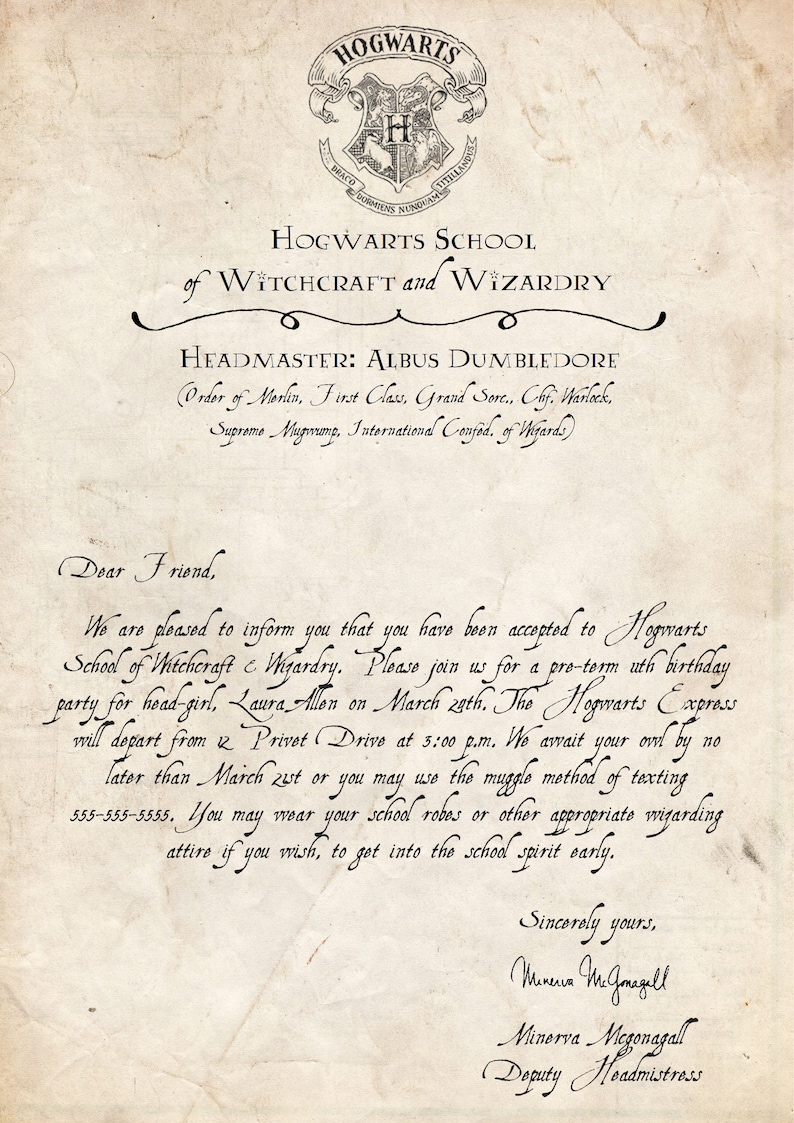 HOGWARTS
H
DRACO DORMIENS NUNQUAM TITILLANDUS
HOGWARTS SCHOOL
of WITCHCRAFT and WIZARDRY
HEADMASTER: ALBUS DUMBLEDORE
(Order of Merlin, First Class, Grand Sorc., Chf. Warlock,
Supreme Mugwump, International Confed. of Wizards)
Dear Friend,
We are pleased to inform you that you have been accepted to Hogwarts
School of Witchcraft & Wizardry. Please join us for a pre-term 11th birthday
party for head-girl, Laura Allen on March 28th. The Hogwarts Express
will depart from 12 Privet Drive at 3:00 p.m. We await your owl by no
later than March 21st or you may use the muggle method of texting
555-555-5555. You may wear your school robes or other appropriate wizarding
attire if you wish, to get into the school spirit early.
Sincerely yours,
Minerva McGonagall
Minerva Mcgonagall
Deputy Headmistress